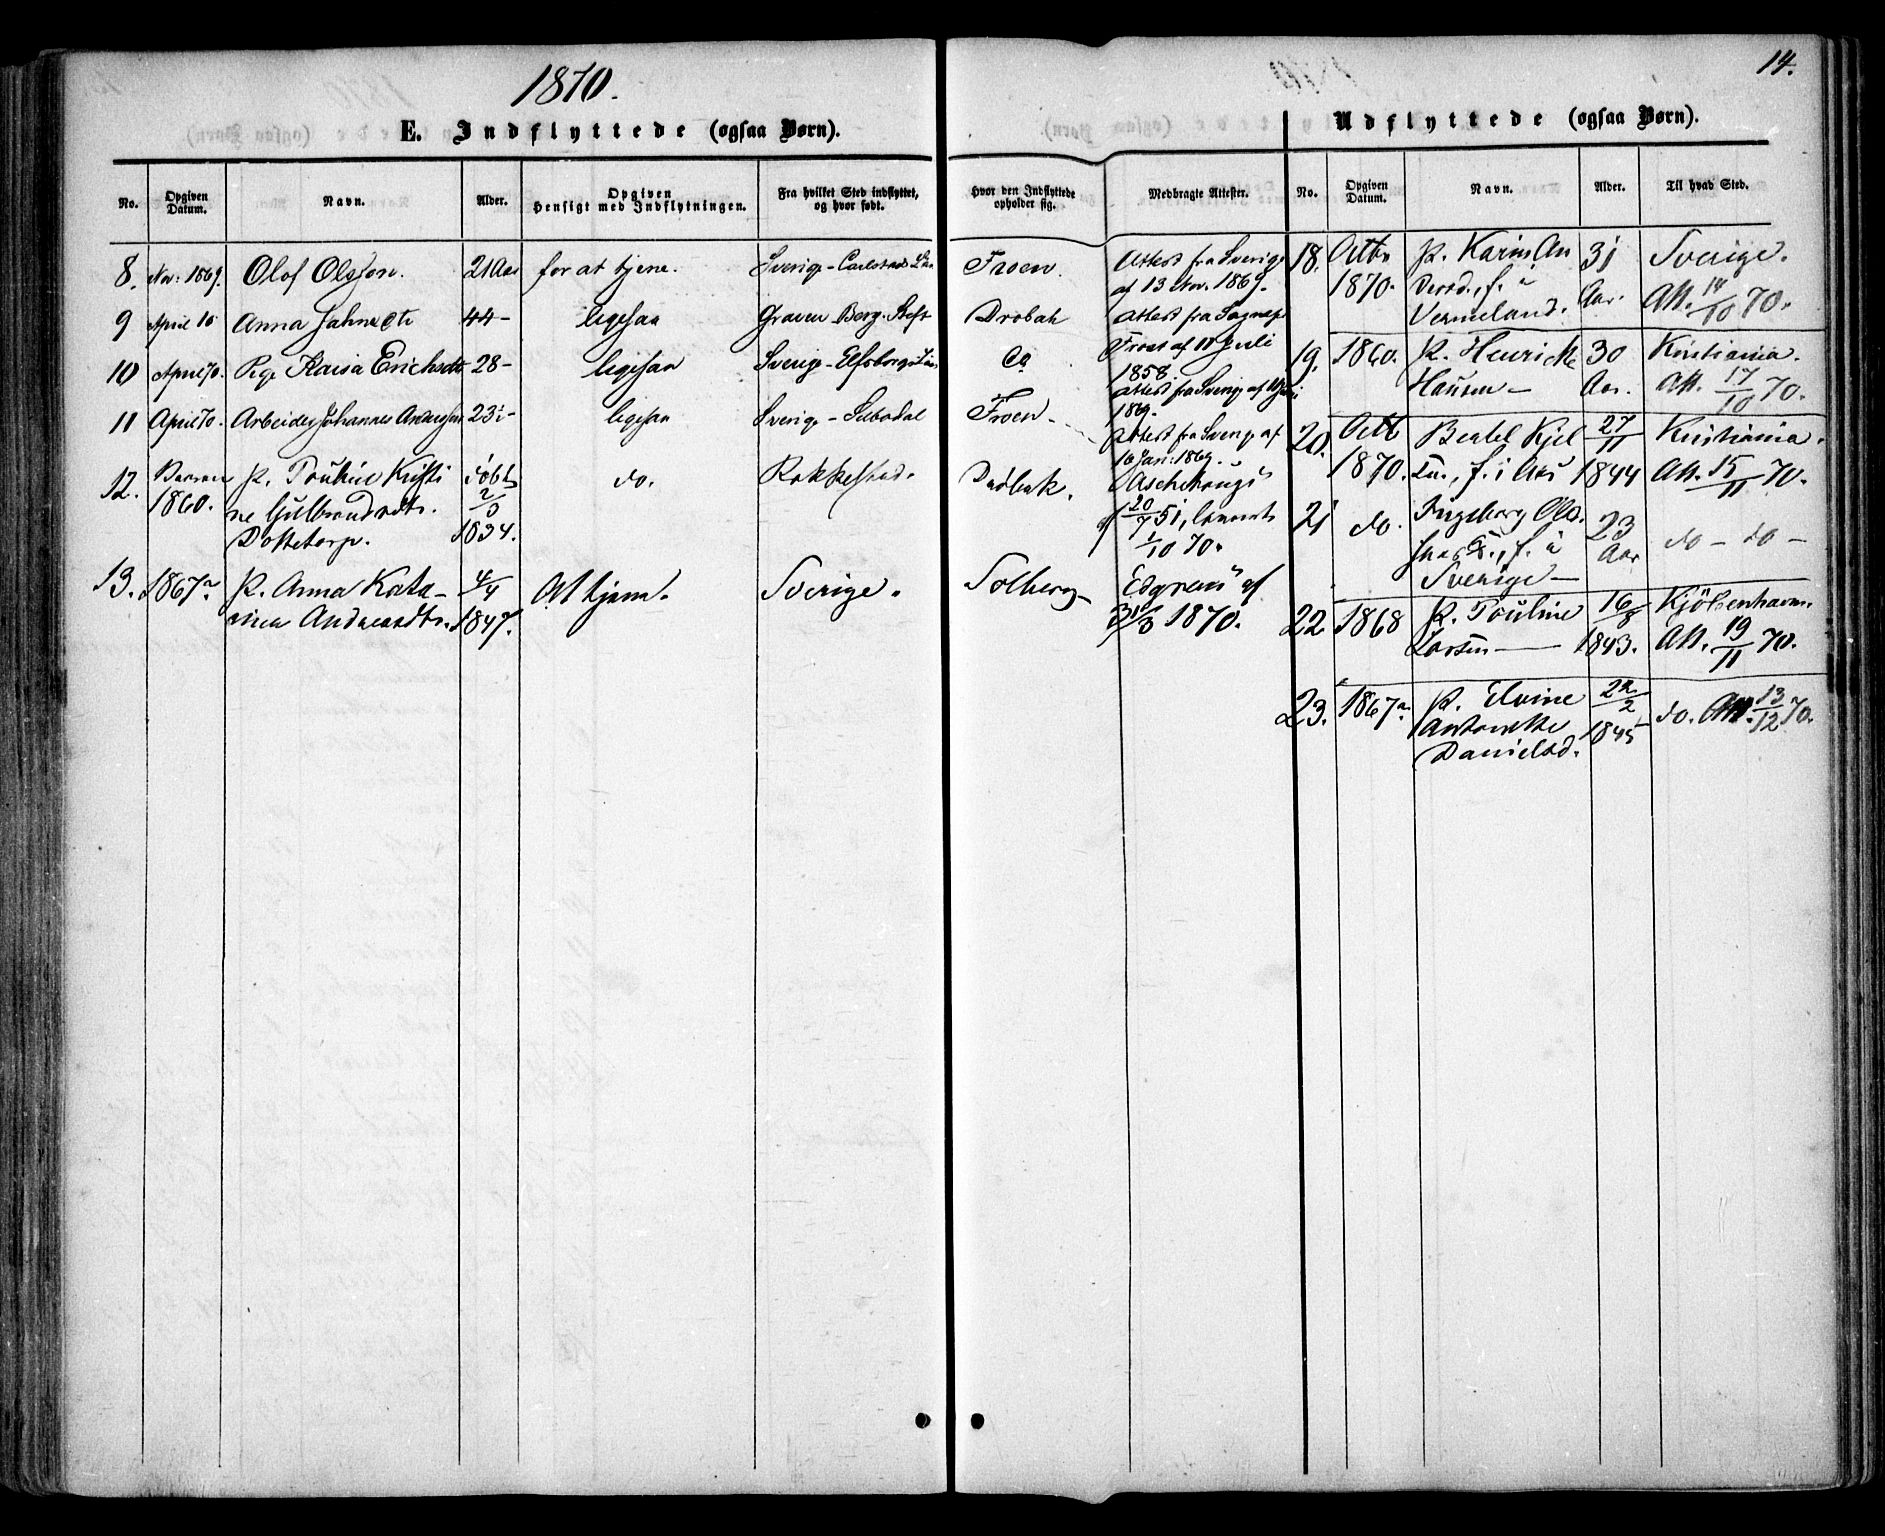 1870.
14.
E. Indflyttede (ogsaa Børn).
Udflyttede (ogsaa Børn).
No.
Opgiven Datum.
Navn.
Alder.
Opgiven Hensigt med Indflytningen.
Fra hvilket Sted indflyttet, og hvor født.
Hvor den Indflyttede opholder sig.
Medbragte Attester.
No.
Opgiven Datum.
Navn.
Alder.
Til hvad Sted.
8. Nov: 1869. Olof Olsson. 21 Aar for at tjene. Sverige - Carlstads Län Froen. Attest fra Sverige
af 13 Nov. 1869.
9 April 10 Anna 44 - ligesaa Drobak Attest fra
Froen af 11 Juli
1858
10 April 70. Pige Kaisa Erichsdtr 28 - ligesaa Sverige - Elfsborgs Län Do Attest fra Sverige af
1869.
11 April 70. Arbeider Johannes Andersson 23 - ligesaa Sverige - Froen - Attest fra Sverige af
16 Jan: 1869.
12. 1860. P. Pouline Kristi
ne Gulbrandsdtr.
født
2/3
1834.
do. Rakkestad. Drøbak. Aschehougs
af 20/7 51,
1/10 70.
13. 1867 P. Anna Kata-
rina Andreasdtr.
4/4
1847.
At tjene. Sverige. Solberg - Edgrens af
31/3 1870.
18. Octb
1870.
P. Karin An
dersd., f. i
Vermeland.
31
Aar.
Sverige.
Att. 14/10 70.
19. 1860. P. Henrikke
Hansen -
30
Aar.
Kristiania.
Att. 17/10 70.
20. Octb
1870.
Bertel Kjel
sen., f. i Aas
27/11
1844
Kristiania.
Att. 15/11 70.
21 do. Ingeborg Ols.
f. i
Sverige -
23
Aar
do - do -
22. 1868 P. Pouline
Larsen -
16/8
1843.
Kjöbenhavn.
Att. 19/11 70.
23. 1867 P. Elvine
Antonette
Danielsd.
22/2
1845
do. Att. 13/12 70.